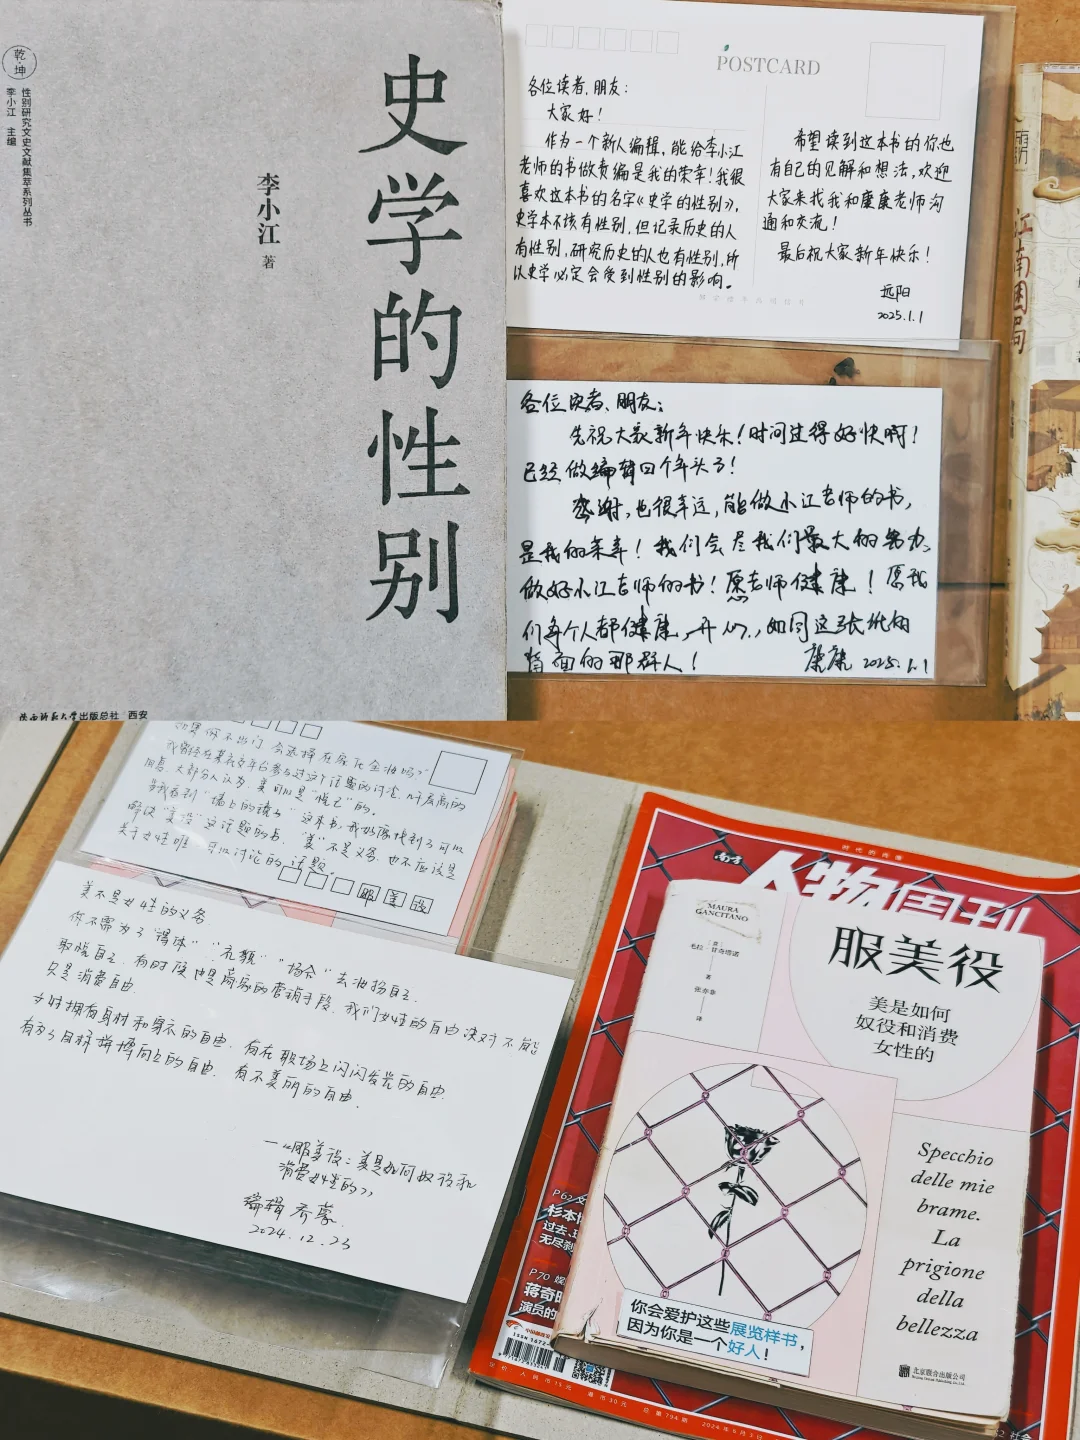 乾·坤
性别研究文史文献集萃系列丛书
李小江 主编
史学的性别
李小江 著
陕西师范大学出版总社 西安
POSTCARD
各位读者、朋友：
大家好！
作为一个新人编辑，能给李小江
老师的书做责编是我的荣幸！我很
喜欢这本书的名字《史学的性别》，
史学本不该有性别，但记录历史的人
有性别，研究历史的人也有性别，所
以史学必定会受到性别的影响。
希望读到这本书的你也
有自己的见解和想法，欢迎
大家来找我和康康老师沟
通和交流！
最后祝大家新年快乐！
远阳
2025.1.1
各位读者、朋友：
先祝大家新年快乐！时间过得好快啊！
已经做编辑四个年头了！
感谢，也很幸运，能做小江老师的书，
是我的荣幸！我们会尽我们最大的努力、
做好小江老师的书！愿老师健康！愿我
们每个人都健康，开心，如同这张纸的
背面的那群人！
康康 2025.1.1
江南
如果你不出门，会选择在家化全妆吗？
当我看到“墙上的镜子”这本书，我好像找到了可以
解决“美役”这话题的书。“美”不是义务，也不应该是
关于女性唯一可以讨论的话题。
服美役
美不是女性的义务
你不需为了“得体”“礼貌”“场合”去油扮自己
取悦自己，有时候也是商家的营销手段，我们女性的自由决对不能
只是消费自由.
女性拥有身材和穿衣的自由，有在职场上闪闪发光的自由.
有为了目标拼搏向上的自由，有不美丽的自由.
——《服美役：美是如何奴役和
消费女性的》
编辑 乔蒙
2024.12.23
时代的肖像
南方
人物周刊
MAURA
GANCITANO
毛拉·甘奇塔诺
著
张亦非
译
服美役
美是如何
奴役和消费
女性的
Specchio
delle mie
brame.
La
prigione
della
bellezza
你会爱护这些展览样书，
因为你是一个好人！
北京联合出版公司
P62
杉本博
过去、
无尽
P70
蒋奇明
演员的
定价 人民币15元 港币30元 总第794期 2024年6月3日